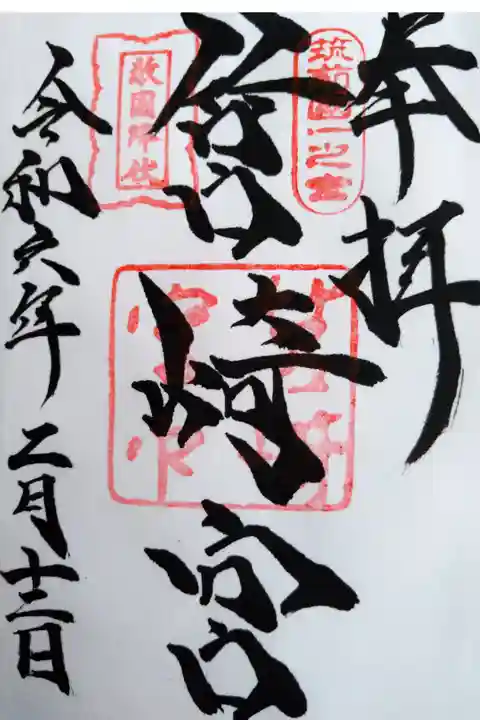 奉拝
筑前國一之宮
筥崎宮
敵國降伏
令和六年二月十二日